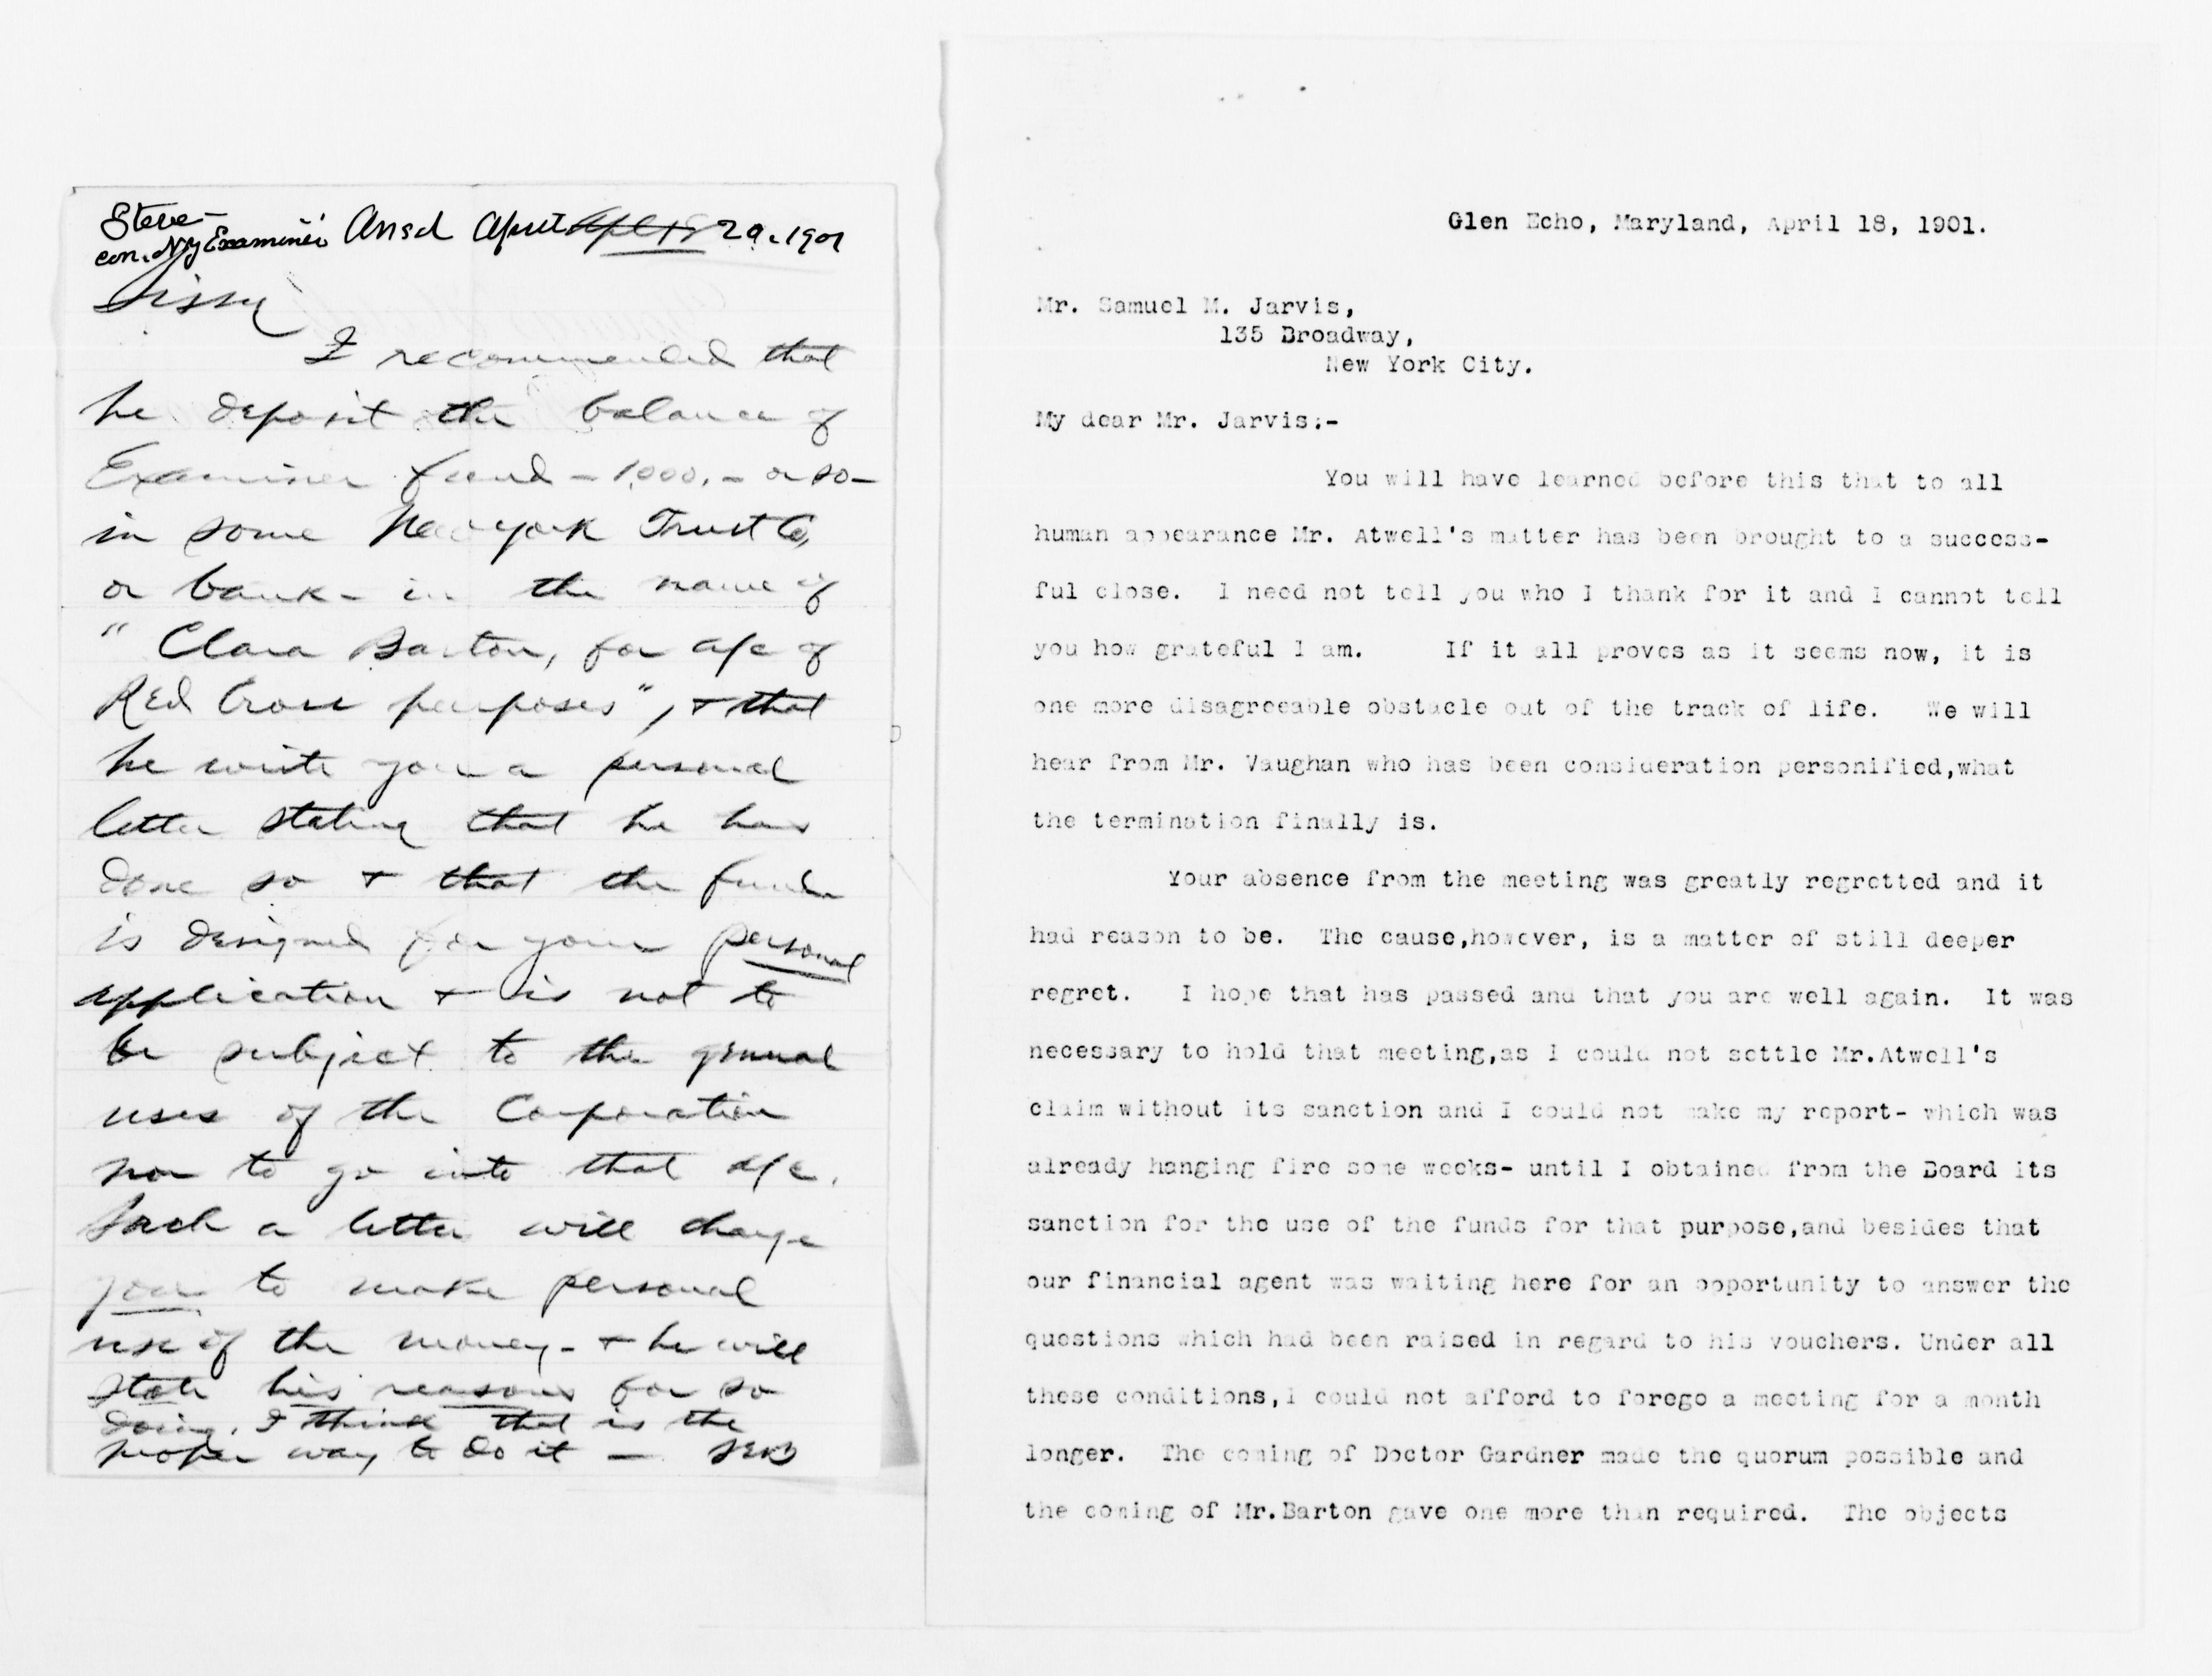 Steve-
con. NY Examiner Ansd April Apl 18 29. 1901
Sissy
I recommended that
he deposit the balance of
Examiner fund - 1,000. - or so -
in some New York Trust Co,
or bank - in the name of
" Clara Barton, for a/c of
Red Cross purposes", + that
he write you a personal
letter stating that he has
done so + that the funds
is designed for your personal
application + is not to
be subject to the general
uses of the Corporation
nor to go into that a/c.
Such a letter will charge
you to make personal
use of the money - + he will
state his reasons for so
doing. I think that is the
proper way to do it — SEB
Glen Echo, Maryland, April 18, 1901.
Mr. Samuel M. Jarvis,
135 Broadway,
New York City.
My dear Mr. Jarvis:-
You will have learned before this that to all
human appearance Mr. Atwell's matter has been brought to a success-
ful close. I need not tell you who I thank for it and I cannot tell
you how grateful I am. If it all proves as it seems now, it is
one more disagreeable obstacle out of the track of life. We will
hear from Mr. Vaughan who has been consideration personified,what
the termination finally is.
Your absence from the meeting was greatly regretted and it
had reason to be. The cause,however, is a matter of still deeper
regret. I hope that has passed and that you are well again. It was
necessary to hold that meeting,as I could not settle Mr.Atwell's
claim without its sanction and I could not make my report- which was
already hanging fire some weeks- until I obtained from the Board its
sanction for the use of the funds for that purpose,and besides that
our financial agent was waiting here for an opportunity to answer the
questions which had been raised in regard to his vouchers. Under all
these conditions,I could not afford to forego a meeting for a month
longer. The coming of Doctor Gardner made the quorum possible and
the coming of Mr.Barton gave one more than required. The objects